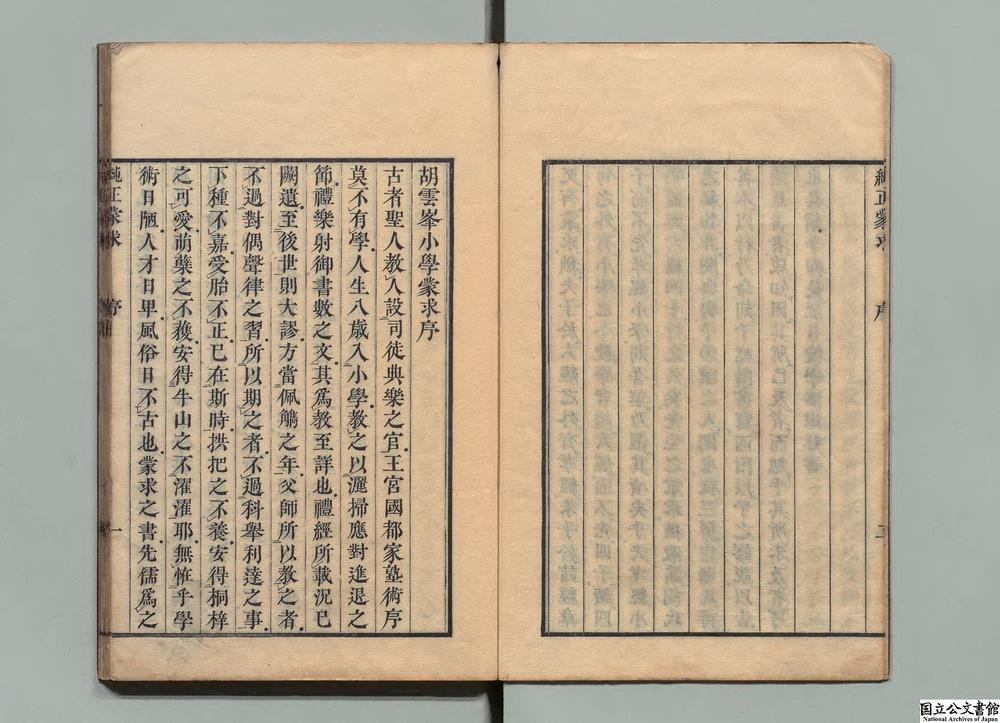 純正蒙求
序
二
胡雲峯小學蒙求序
古者聖人教人設司徒典樂之官王宮國都家塾術序
莫不有學人生八歲入小學教之以灑掃應對進退之
節禮樂射御書數之文其爲教至詳也禮經所載況已
闕遺至後世則大謬方當佩觿之年父師所以教之者
不過對偶聲律之習所以期之者不過科舉利達之事
下種不嘉受胎不正已在斯時拱把之不養安得桐梓
之可愛萌蘖之不殘安得牛山之不濯濯耶無恠乎學
術日陋人才日卑風俗日不古也蒙求之書先儒爲之
純正蒙求
序
一
国立公文書館
National Archives of Japan